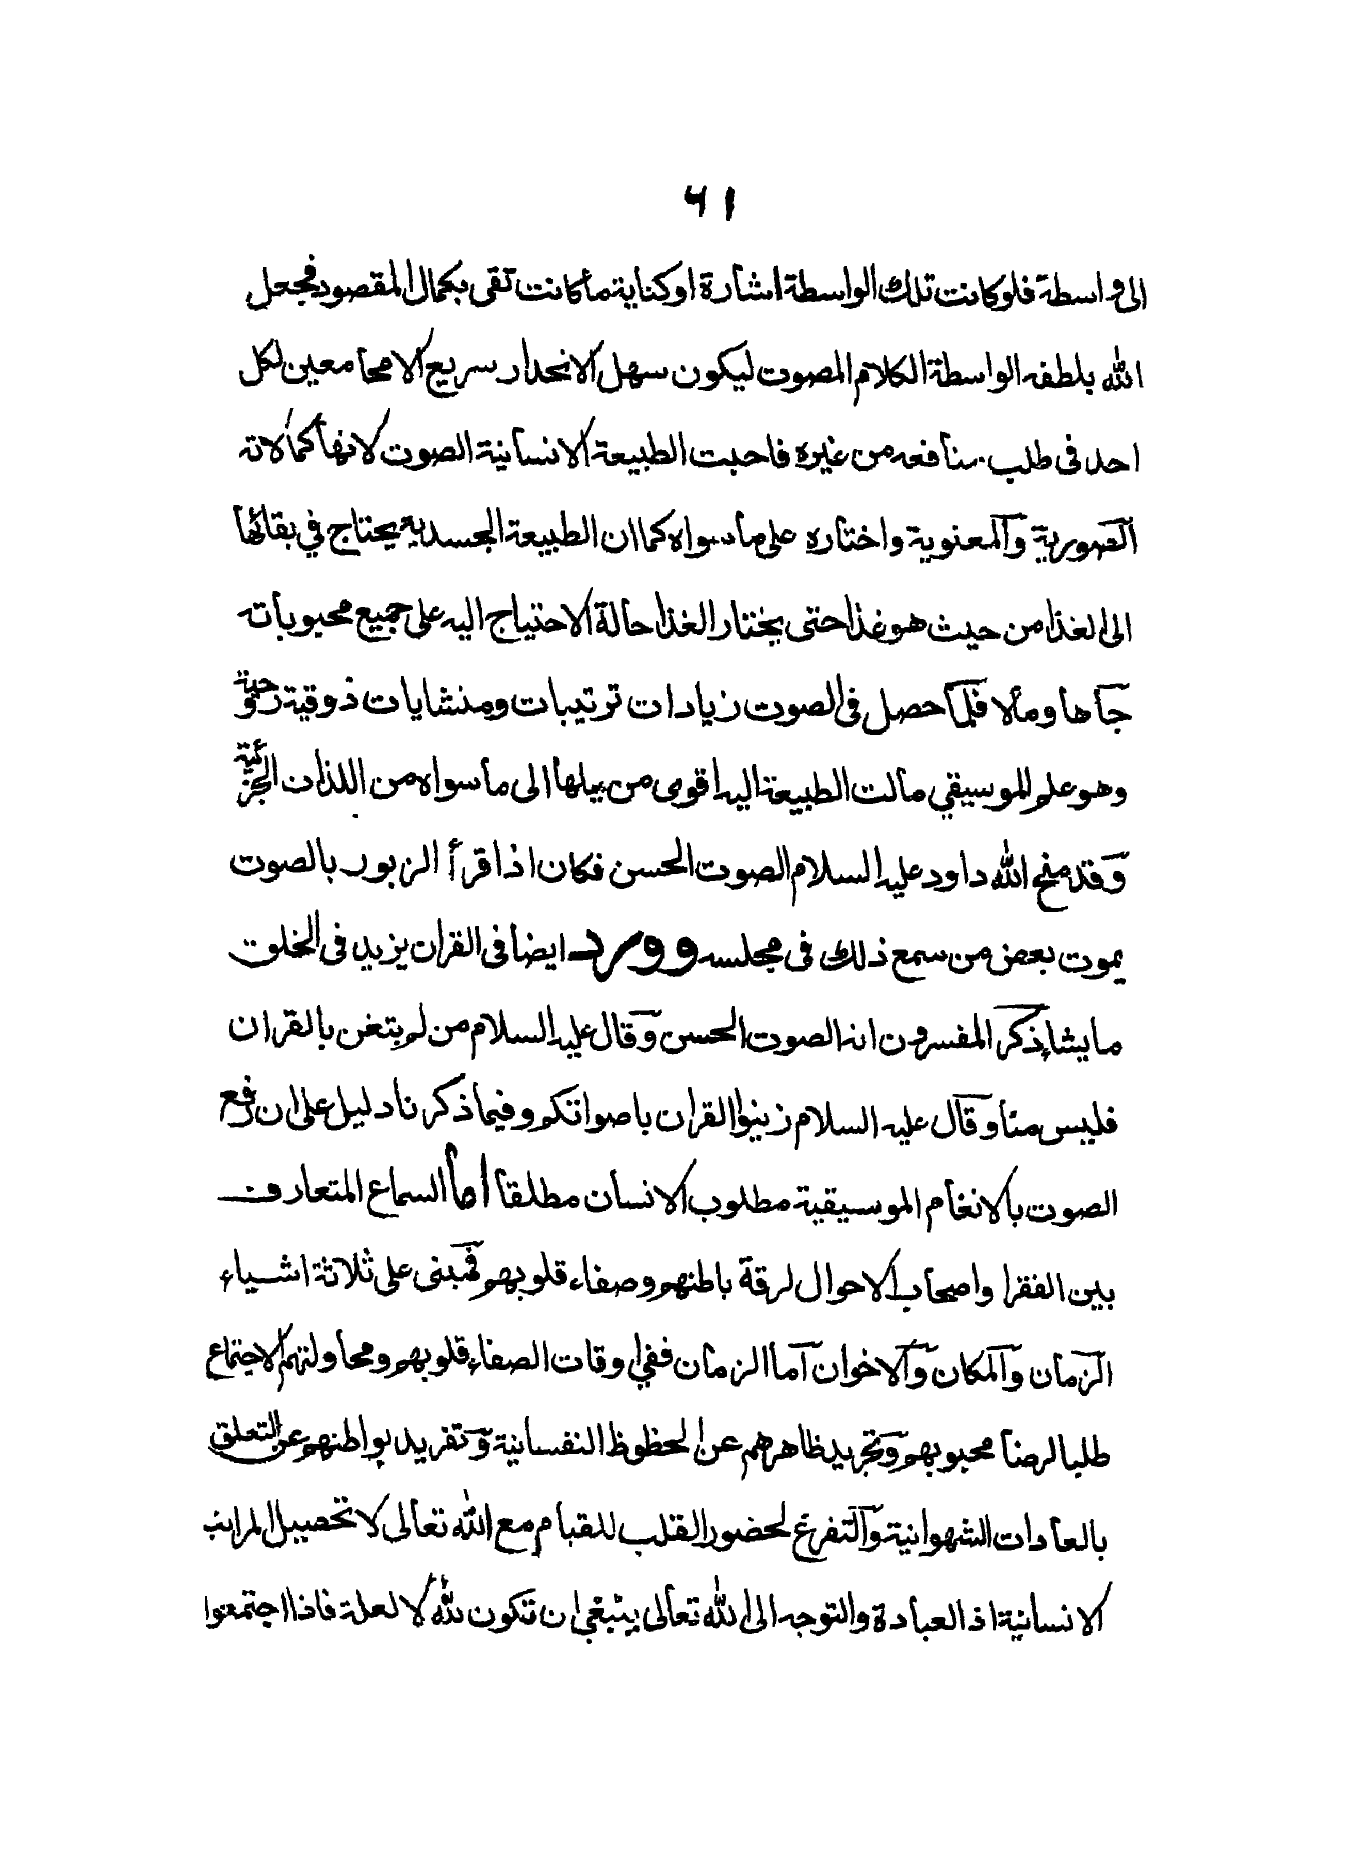 ٦١
الى واسطة فلو كانت تلك الواسطة اشارة او كناية ما كانت تفى بكمال المقصود فجعل
الله بلطفه الواسطة الكلام المصوت ليكون سهل الانحدار سريع الامحا معين لكل
احد فى طلب منافعه من غيره فاحبت الطبيعة الانسانية الصوت لانها كمالاته
الصورية والمعنوية واختاره على ما سواه كما ان الطبيعة الجسدية يحتاج في بقائها
الى الغذا من حيث هو غذا حتى يختار الغذا حالة الاحتياج اليه على جميع محبوباته
جآها ومالا فلما حصل فى الصوت زيادات ترتيبات ومنشايات ذوقية روحية
وهو علم الموسيقي مالت الطبيعة اليه اقوى من ميلها الى ما سواه من اللذات الجزئية
وقد منح الله داود عليه السلام الصوت الحسن فكان اذا قرأ الزبور بالصوت
يموت بعض من سمع ذلك فى مجلسه وورد ايضا فى القران يزيد فى الخلق
ما يشاء ذكر المفسرون انه الصوت الحسن وقال عليه السلام من لم يتغن بالقران
فليس منا وقال عليه السلام زينوا القران باصواتكم وفيما ذكرنا دليل على ان رفع
الصوت بالانغام الموسيقية مطلوب الانسان مطلقا أما السماع المتعارف
بين الفقرا واصحاب الاحوال لرقة باطنهم وصفاء قلوبهم فمبنى على ثلاثة اشياء
الزمان والمكان والاخوان آما الزمان ففي اوقات الصفاء قلوبهم ومحاولتهم الاجتماع
طلبا لرضا محبوبهم وتجريد ظاهرهم عن الحظوظ النفسانية وتفريد بواطنهم عن التعلق
بالعادات الشهوانية والتفرغ لحضور القلب للقيام مع الله تعالى لا تحصيل المراتب
الانسانية اذ العبادة والتوجه الى الله تعالى ينبغي ان تكون لله لا لعلة فاذا اجتمعوا